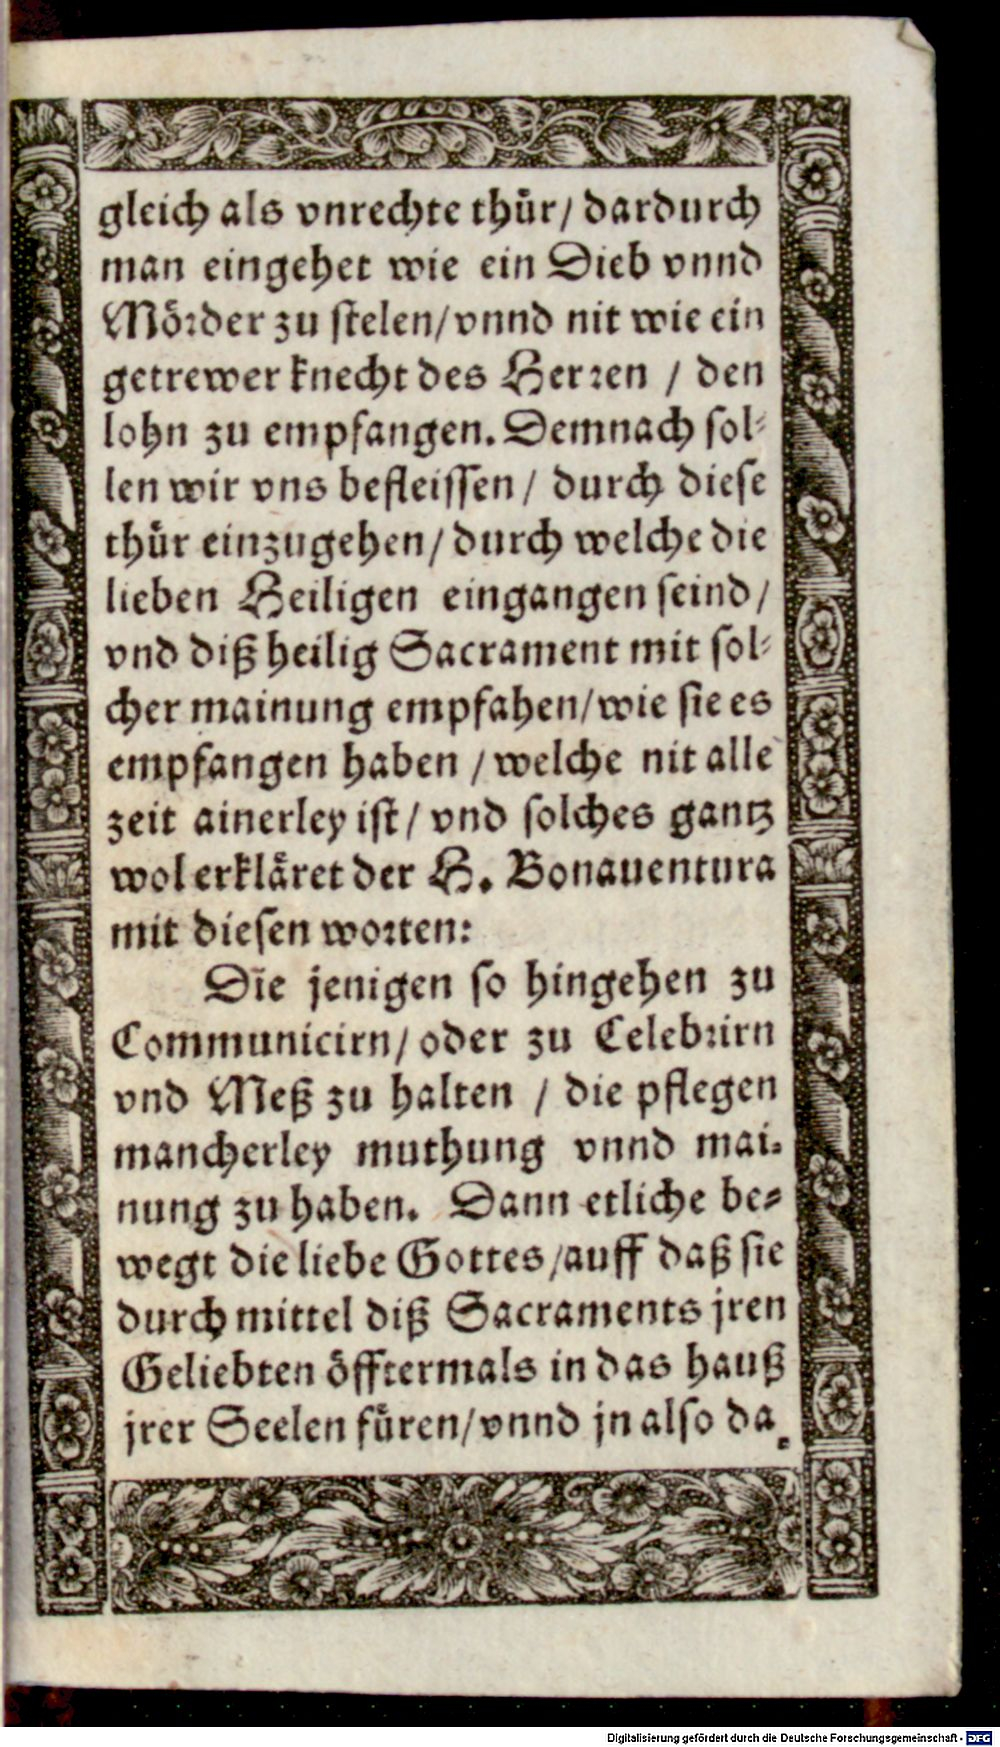 gleich als vnrechte thür/ dardurch
man eingehet wie ein Dieb vnnd
Mörder zu stelen/vnnd nit wie ein
getrewer knecht des Herren / den
lohn zu empfangen. Demnach sol-
len wir vns befleissen/ durch diese
thür einzugehen/durch welche die
lieben Heiligen eingangen seind/
vnd diß heilig Sacrament mit sol-
cher mainung empfahen/wie sie es
empfangen haben /welche nit alle
zeit ainerley ist/ vnd solches gantz
wol erkläret der H. Bonauentura
mit diesen worten:
Die jenigen so hingehen zu
Communicirn/oder zu Celebrirn
vnd Meß zu halten / die pflegen
mancherley muthung vnnd mai-
nung zu haben. Dann etliche be-
wegt die liebe Gottes/auff daß sie
durch mittel diß Sacraments jren
Geliebten öfftermals in das hauß
jrer Seelen füren/vnnd jn also da-
Digitalisierung gefördert durch die Deutsche Forschungsgemeinschaft - DFG